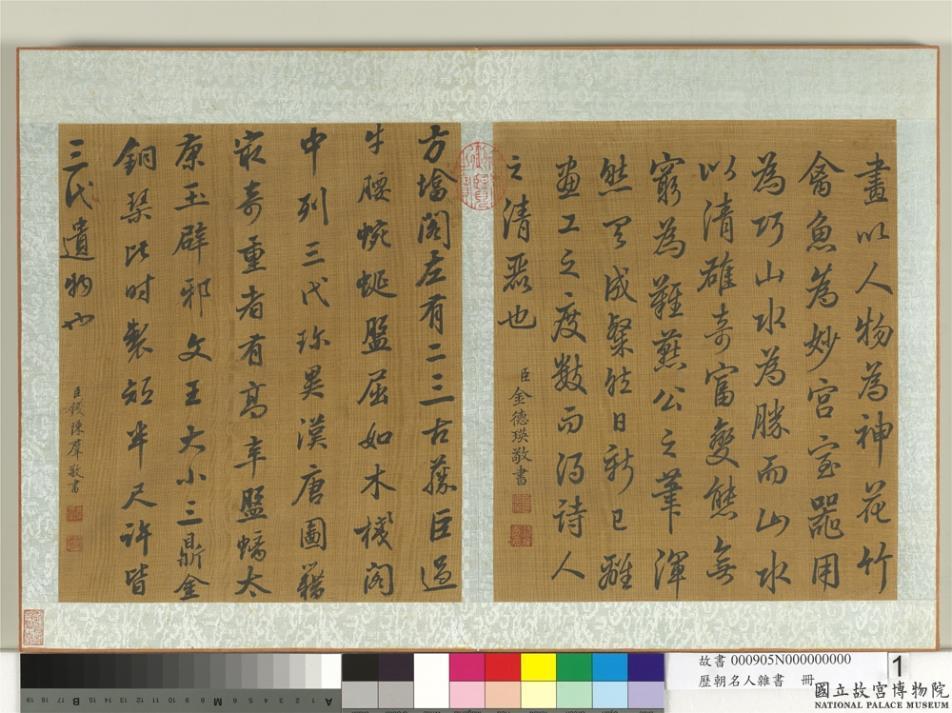 畫以人物為神花竹
禽魚為妙宮室器用
為巧山水為勝而山水
以清雄奇富變態無
窮為難燕公之筆渾
然天成粲然日新已離
畫工之度數而得詩人
之清麗也
臣金德瑛敬書
方墻閣左有二三古藤巨過
牛腰蜿蜒盤屈如木棧閣
中列三代珍異漢唐圖籍
最奇重者有高辛盤螭太
康玉辟邪文王大小三鼎金
銅琹此时製短半尺許皆
三代遺物也
臣錢陳羣敬書
故書 000905N000000000 1
歷朝名人雜書 冊
國立故宮博物院
NATIONAL PALACE MUSEUM